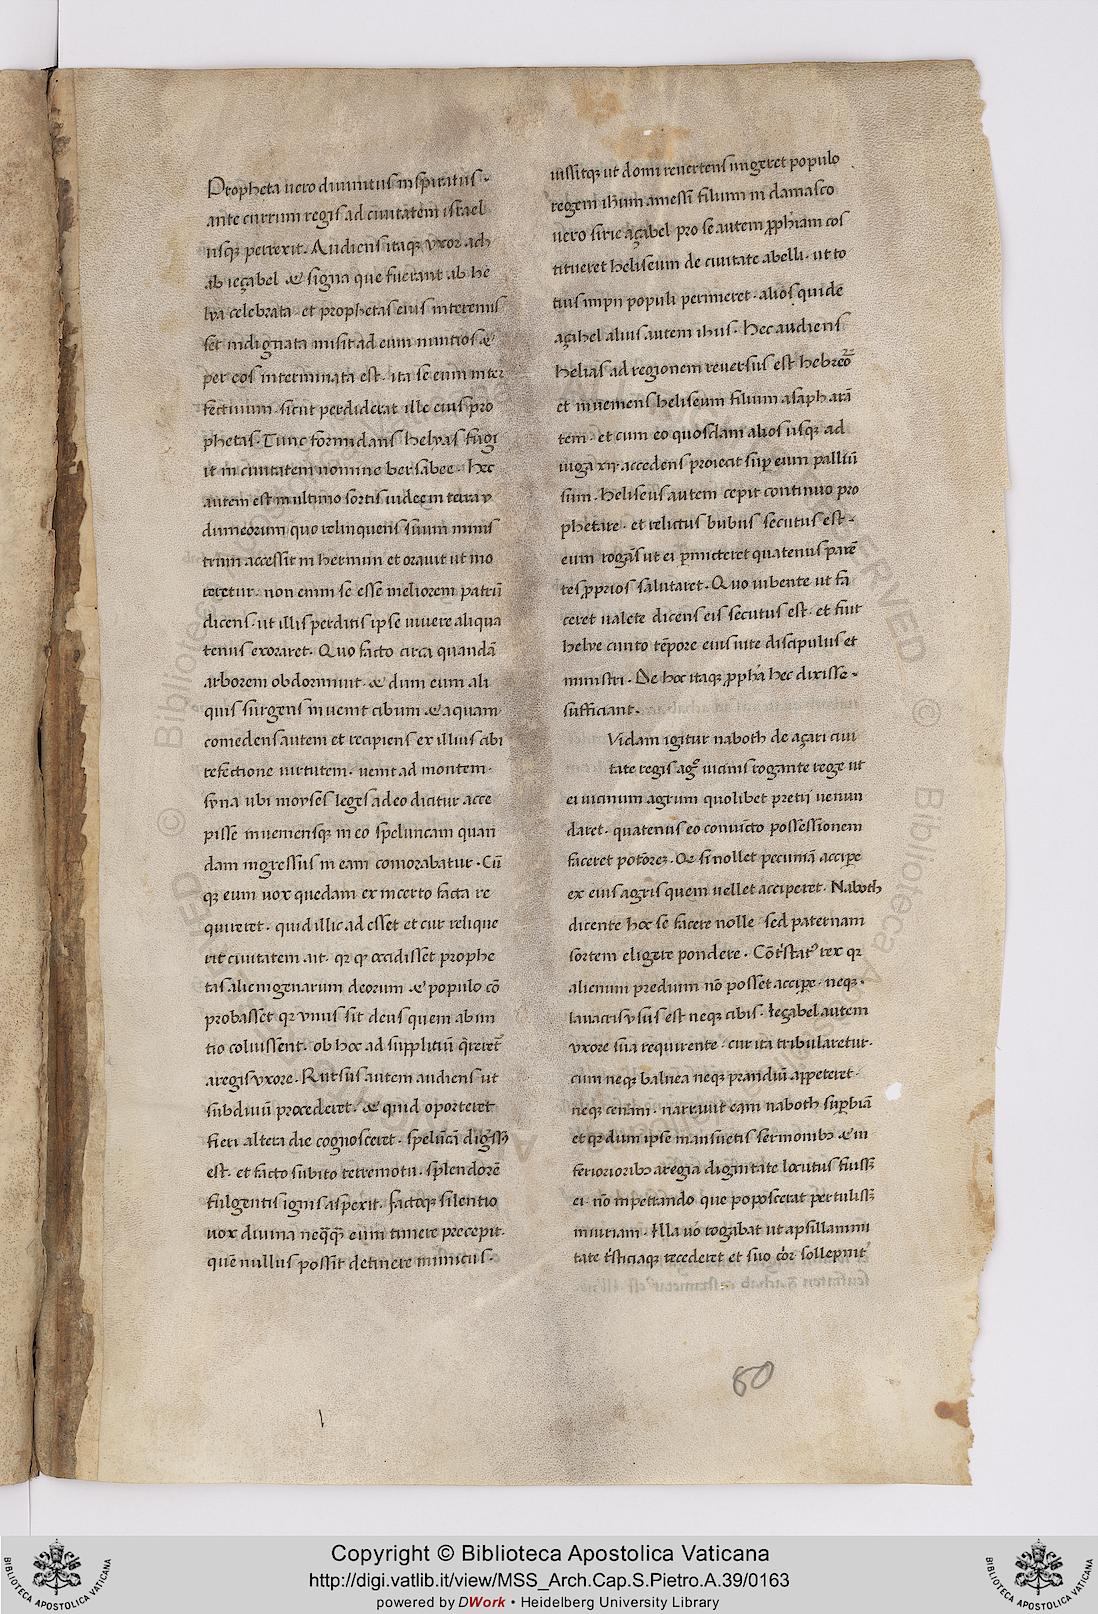 Propheta uero diuinitus inspiratus ·
ante currum regis ad ciuitatem israel
usq; perrexit. Audiens itaq; uxor ach
ab ieçabel & signa que fuerant ab he
lya celebrata · et prophetas eius interemis
set indignata misit ad eum nuntios &
per eos interminata est · ita se eum inter
fecturum · sicut perdiderat ille eius pro
phetas · Tunc formidans helyas fugi
it in ciuitatem nomine bersabee · Hec
autem est in ultimo sortis iudee in terra y
dumeorum quo relinquens suum minis
trum accessit in hermum et orauit ut mo
reretur · non enim se esse meliorem patrū
dicens · ut illis perditis ipse uiuere aliqua
tenus exoraret · Quo facto circa quandā
arborem obdormiuit · & dum eum ali
quis surgens inuenit cibum · & aquam
comedens autem et recipiens ex illius cibi
refectione uirtutem · uenit ad montem ·
syna ubi moyses leges a deo dicitur acce
pisse inueniensq; in eo speluncam quan
dam ingressus in eam comorabatur · Cū
q; eum uox quedam ex incerto facta re
quireret · quid illic adesset et cur relique
rit ciuitatem ait · qr q occidisset prophe
tas alienigenarum deorum & populo cō
probasset qr unus sit deus quem ab ini
tio coluissent · ob hoc ad supplitiū q̄reret
a regis uxore · Rursus autem audiens ut
sub diuū procederet · & quid oporteret
fieri altera die cognosceret · speluncā
est · et facto subito terremotu · splendorē
fulgentis ignis aspexit · factoq; silentio
uox diuina neq̄q̄ eum timere precepit ·
quē nullus possit detinere inimicus ·
iussitq; ut domi reuertens ungeret populo
regem ihum amessi filium in damasco
uero sirie açabel pro se autem pphiam cos
titueret heliseum de ciuitate abelli · ut to
tius impii populi perimeret · alios quide
açahel alius autem ihus · Hec audiens
helias ad regionem reuersus est hebreoꝝ
et inueniens heliseum filium asaph arā
tem · et cum eo quosdam alios usq; ad
iuga xii · accedens proiecit sup eum palliū
suum · heliseus autem cepit continuo pro
phetare · et relictus bubus secutus est ·
eum rogās ut ei pmitteret quatenus parē
tes pprios salutaret · Quo iubente ut fa
ceret ualete dicens eis secutus est · et fuit
helye cunto tēpore eius uite discipulus et
ministri · De hoc itaq; ppha hec dixisse ·
sufficiant ·
Vidam igitur naboth de açari ciui
tate regis agͦ uicinis rogante rege ut
ei uicinum agrum quolibet pretii uenun
daret · quatenus eo conuincto possessionem
faceret potiorez · Qe si nollet pecuniā accipe
ex eius agris quem uellet acciperet · Naboth
dicente hoc se facere nolle sed paternam
sortem eligere pondere · rex qr
alienum predium nō posset accipe · neq; ·
lauacris usus est neq; cibis · ieçabel autem
uxore sua requirente · cur ita tribularetur ·
cum neq; balnea neq; prandiū appeteret ·
neq; cenam · narrauit eam naboth supbiā
et qr dum ipse mansuetis sermonib; & in
ferioriorib; a regia dignitate locutus fuiss;
ei · nō inpetrando que poposcerat pertuliss;
iniuriam · Illa uo rogabat ut a psillanimi
tate tsticiaq; recederet et suo sollepnit
80
Copyright © Biblioteca Apostolica Vaticana
http://digi.vatlib.it/view/MSS_Arch.Cap.S.Pietro.A.39/0163
powered by DWork • Heidelberg University Library